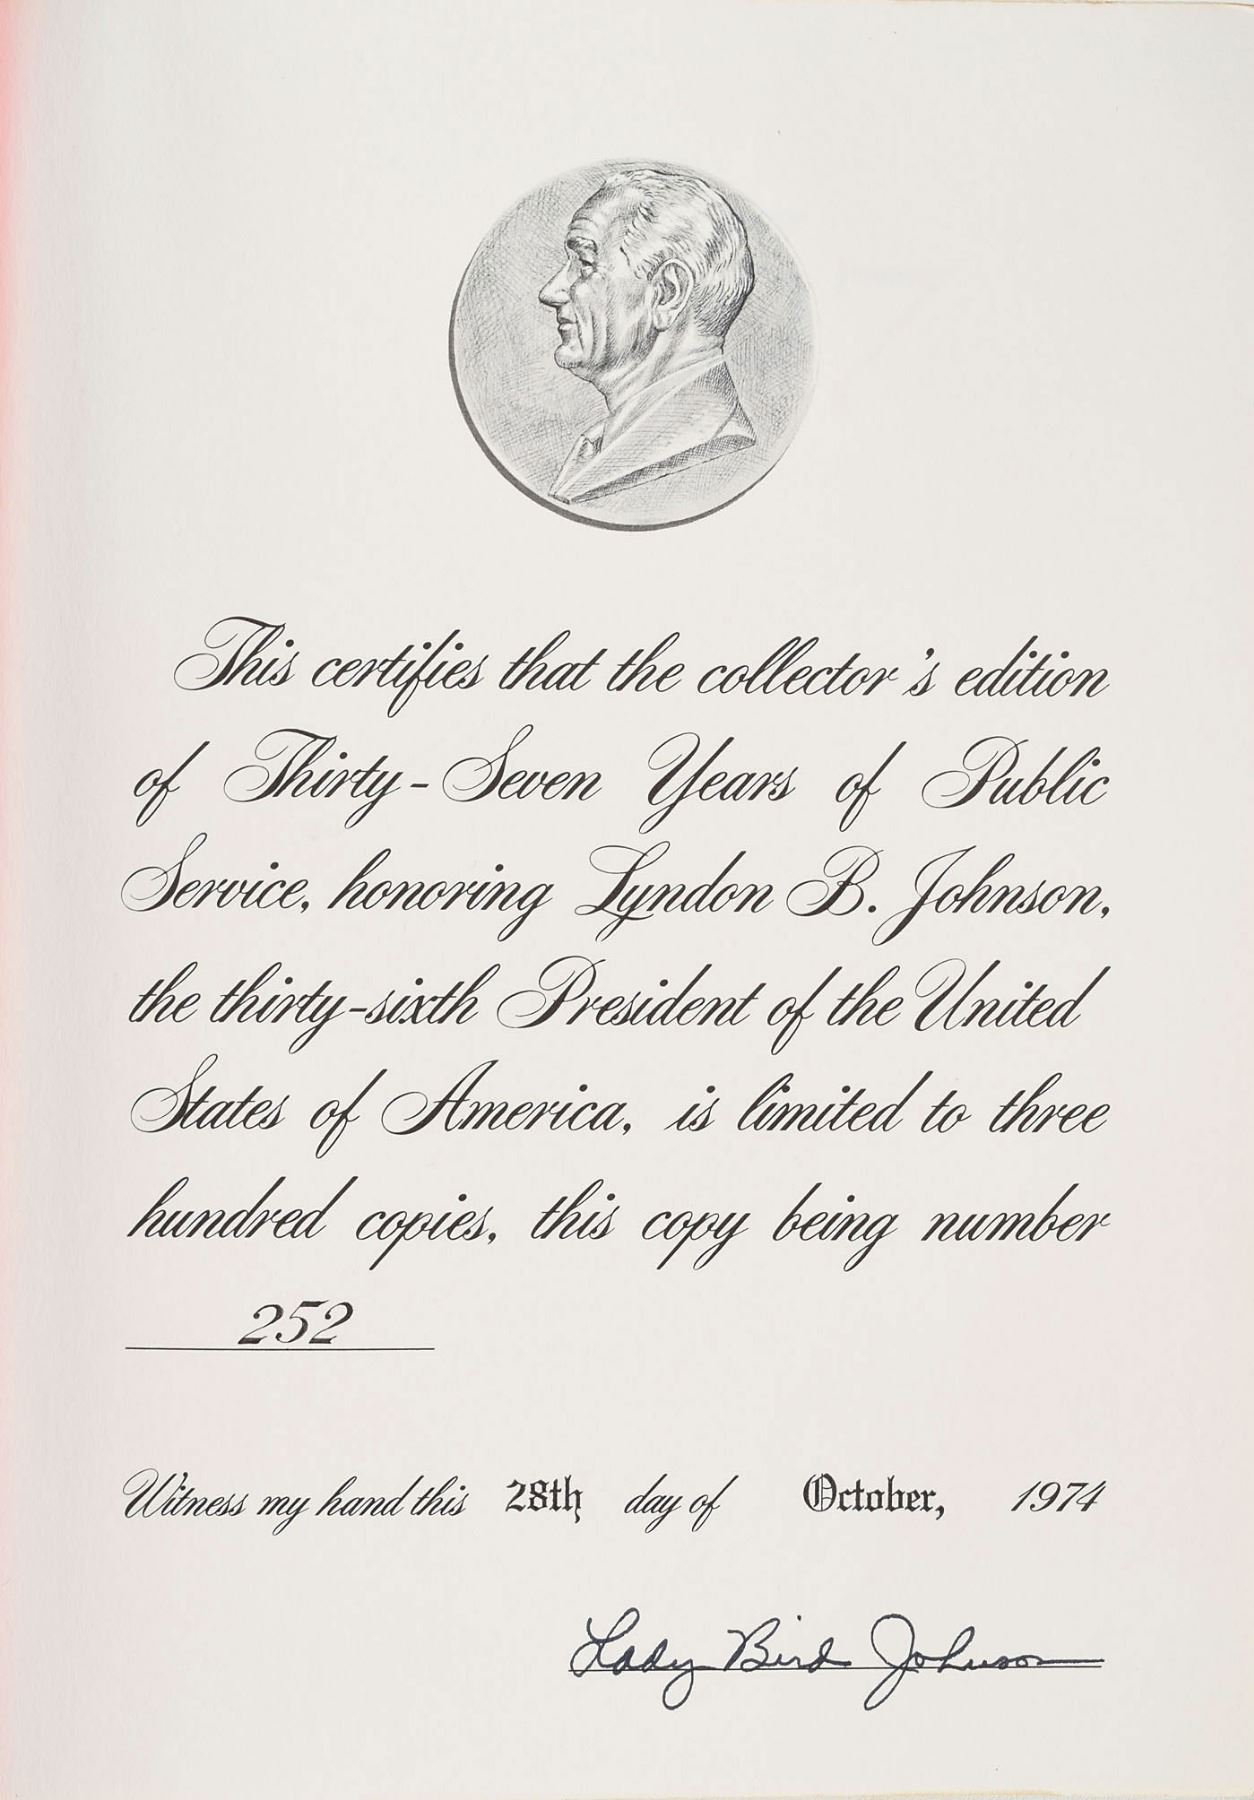 This certifies that the collector's edition
of Thirty-Seven Years of Public
Service, honoring Lyndon B. Johnson,
the thirty-sixth President of the United
States of America, is limited to three
hundred copies, this copy being number
252
Witness my hand this 28th day of October, 1974
Lady Bird Johnson